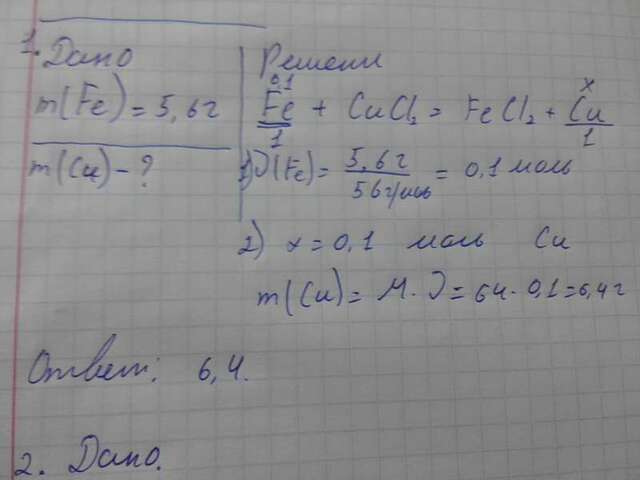 1. Дано
m(Fe) = 5,6г
m(Cu) - ?
Решении
0,1 x
Fe + CuCl2 = FeCl2 + Cu
1 1
1) ν(Fe) = 5,6г / 56г/моль = 0,1 моль
2) x = 0,1 моль Cu
m(Cu) = M · ν = 64 · 0,1 = 6,4г
Ответ: 6,4.
2. Дано.